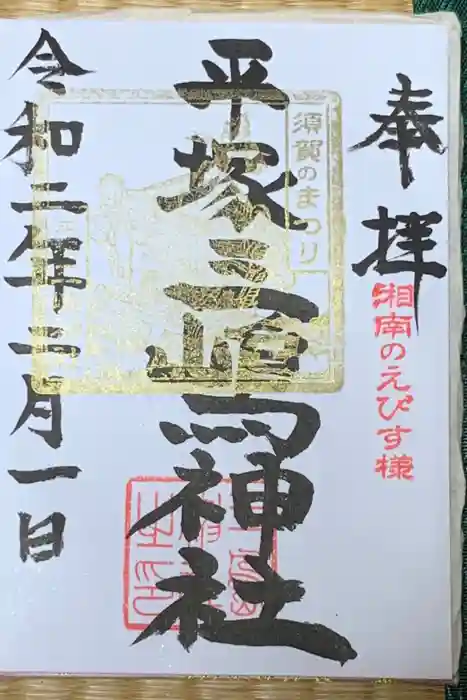 奉拝
湘南のえびす様
平塚三嶋神社
須賀のまつり
令和二年三月一日